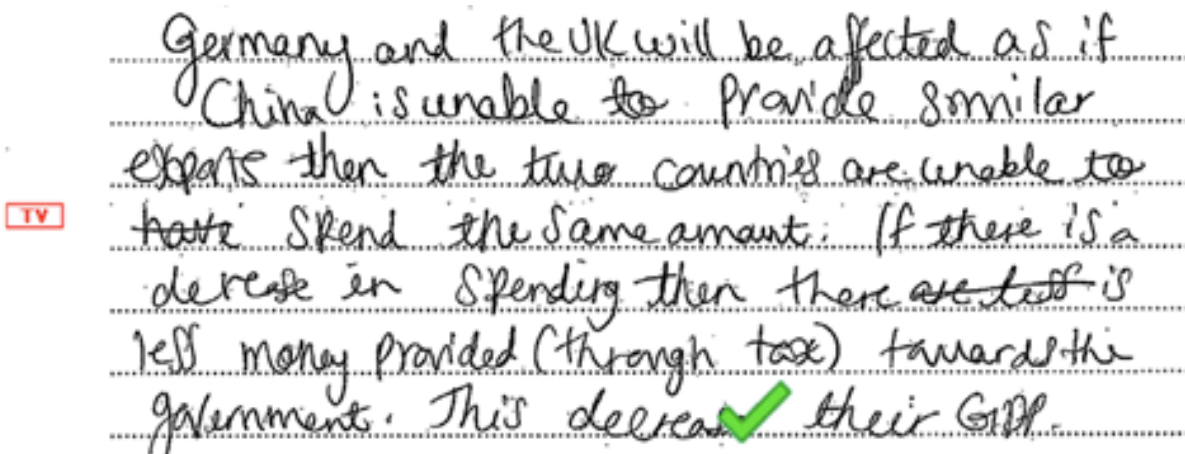 Germany and the UK will be affected as if
China is unable to provide similar
exports then the two countries are unable to
TV
have spend the same amount. If there is a
decrease in spending then there are less is
less money provided (through tax) towards the
government. This decreas their GDP.